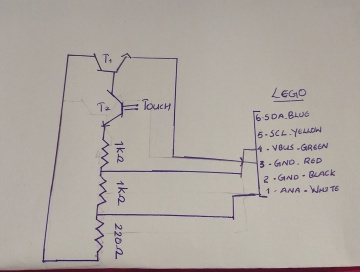 T1
T2
TOUCH
1KΩ
1KΩ
220Ω
LEGO
6-SDA.BLUE
5-SCL.YELLOW
4 VBUS-GREEN
3-GND.RED
2-GND-BLACK
1-ANA-WHITE